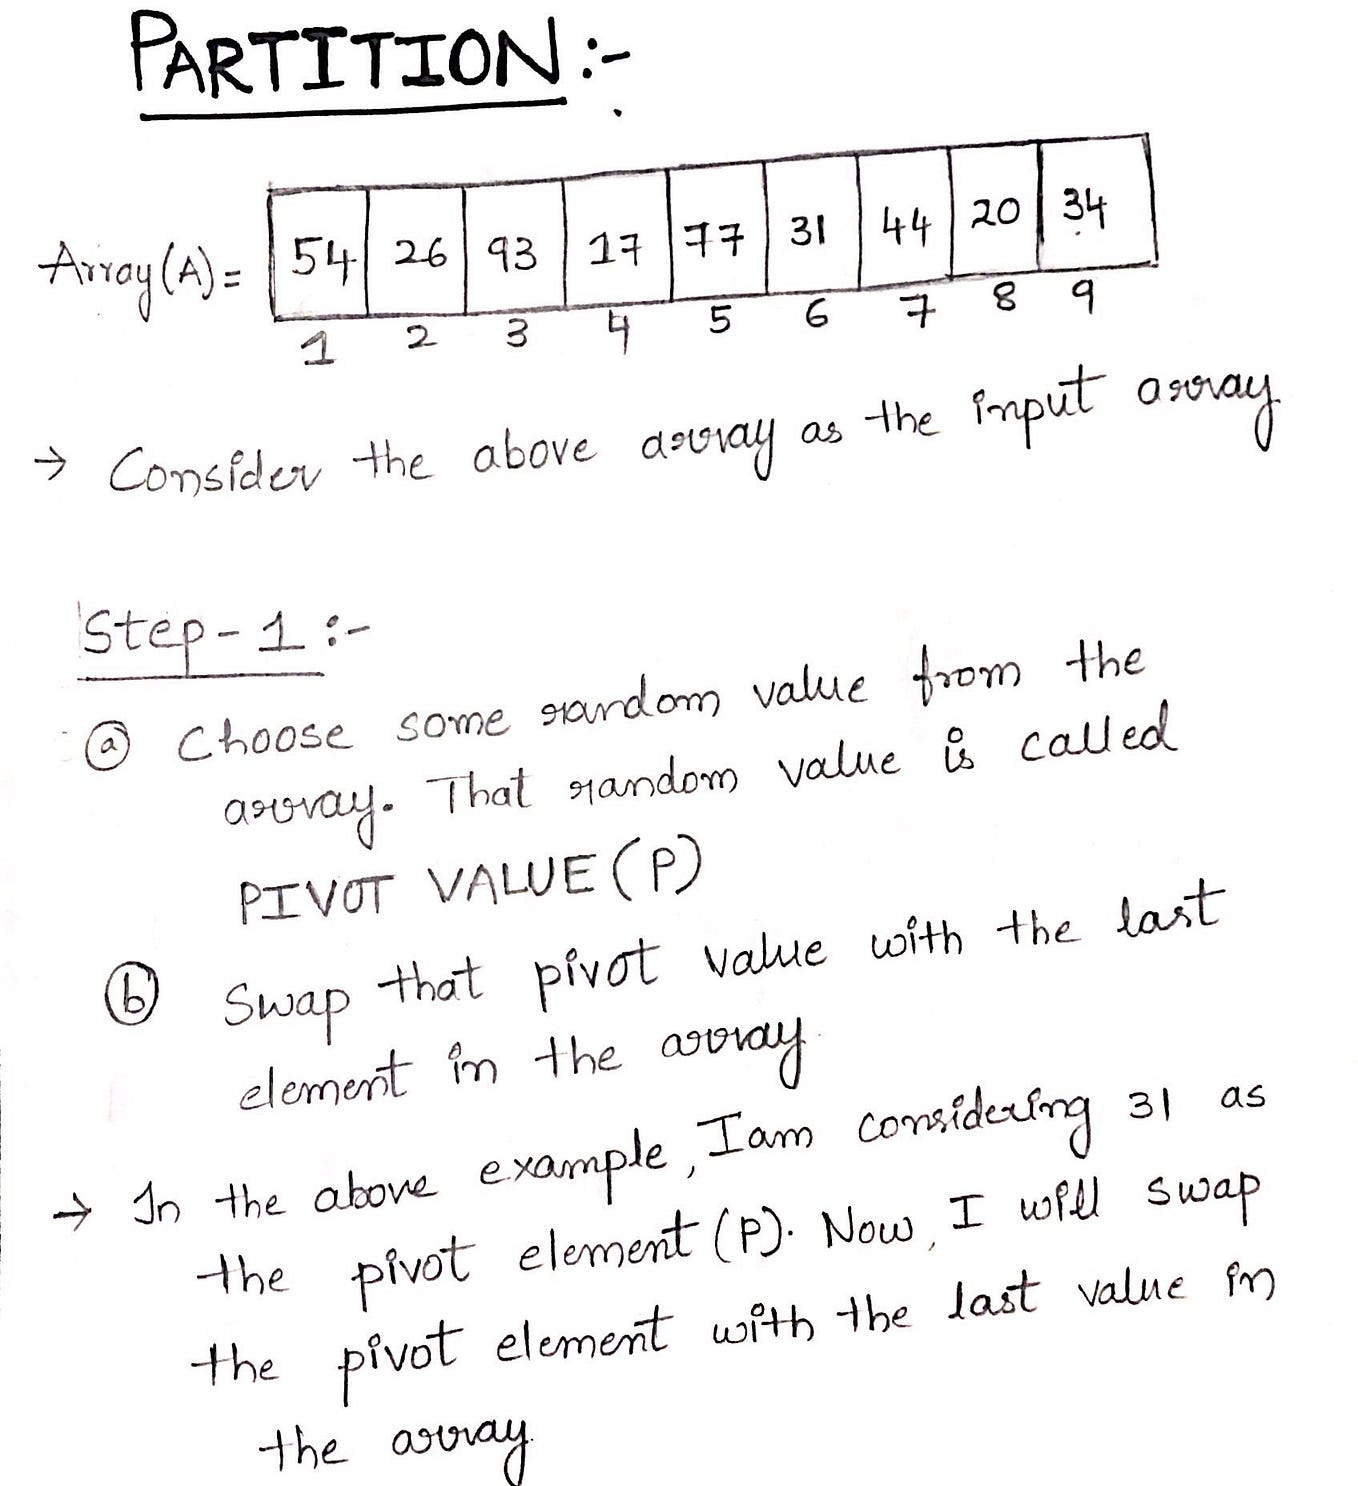 PARTITION :-
Array(A) = 54 26 93 17 77 31 44 20 34
1 2 3 4 5 6 7 8 9
→ Consider the above array as the input array
Step-1 :-
ⓐ Choose some random value from the
array. That random value is called
PIVOT VALUE (P)
ⓑ Swap that pivot value with the last
element in the array.
→ In the above example, I am considering 31 as
the pivot element (P). Now, I will swap
the pivot element with the last value in
the array.